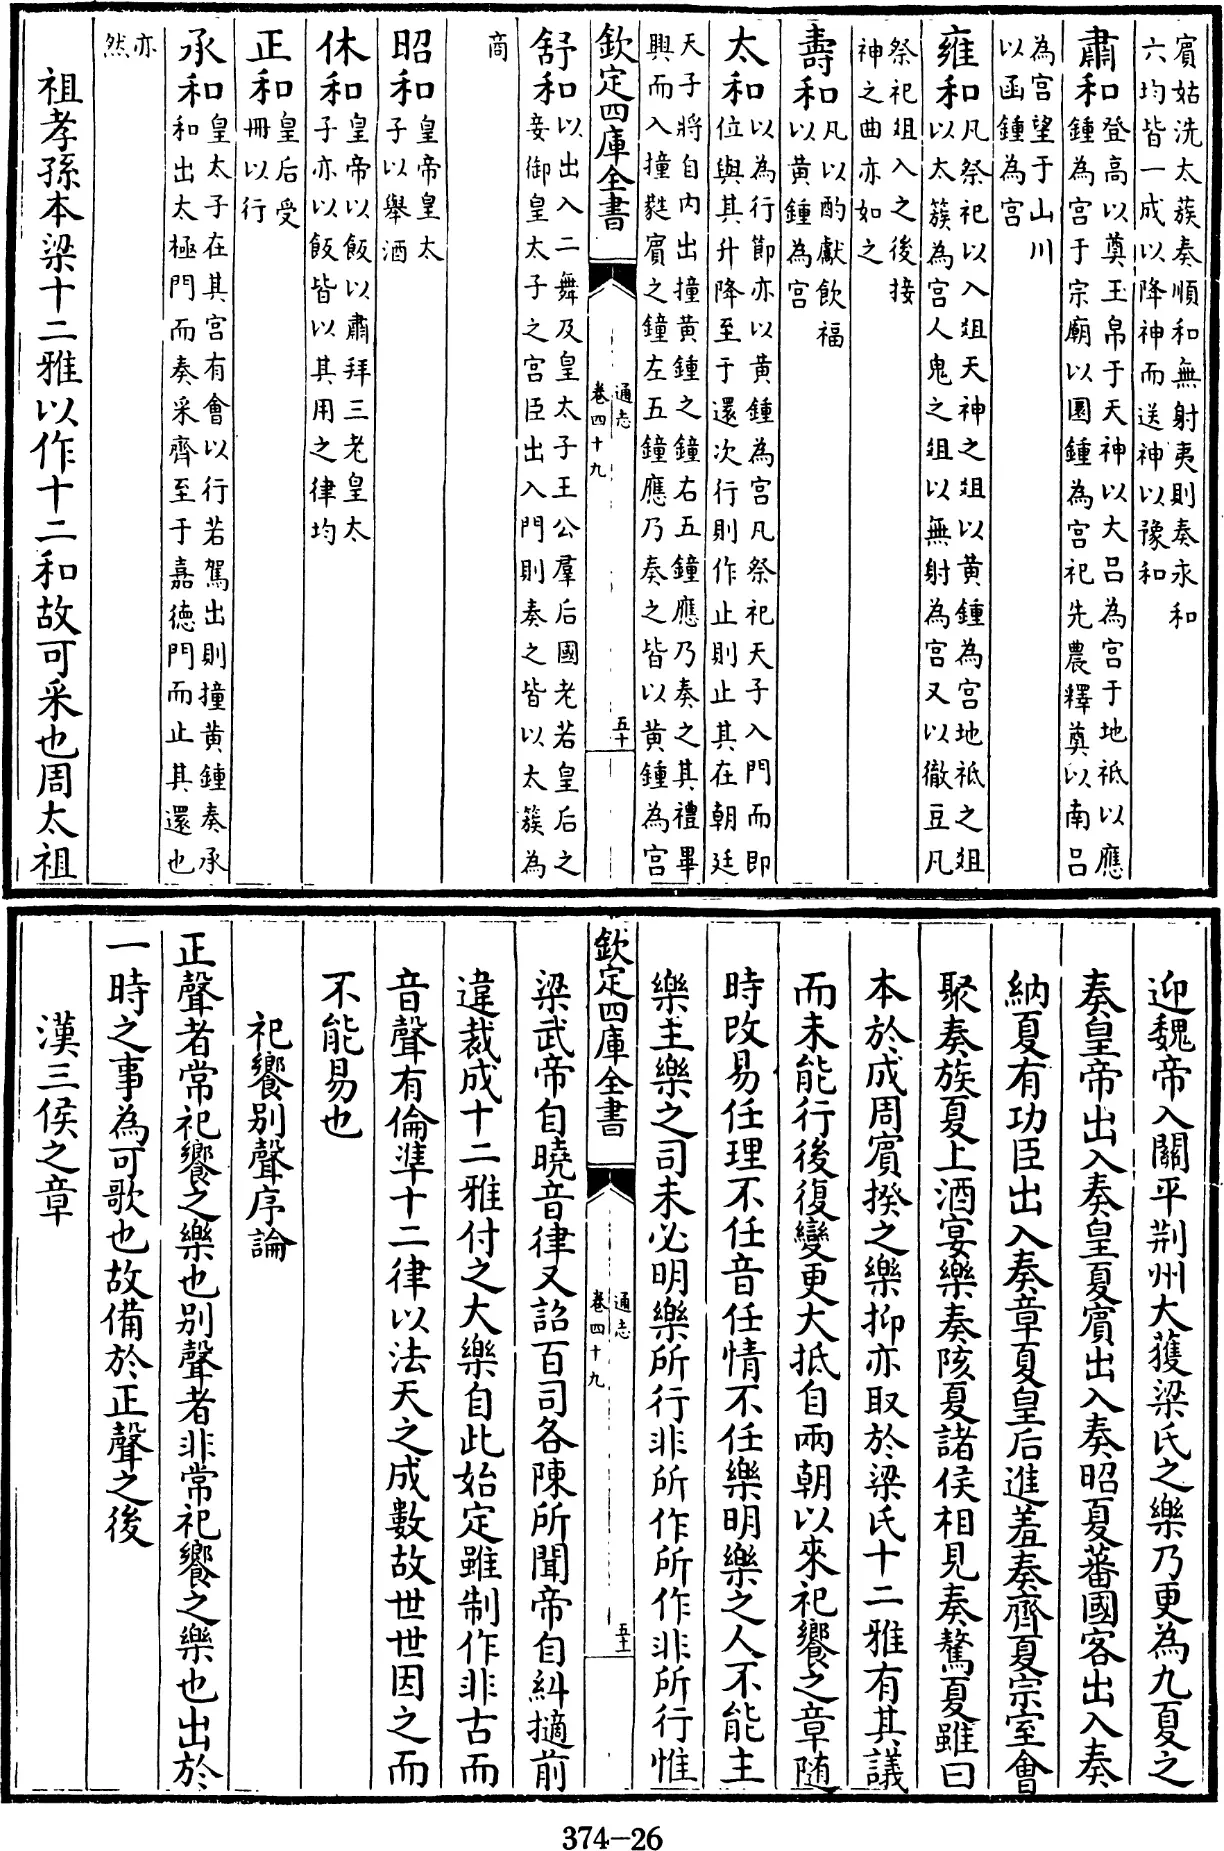 賓姑洗太蔟奏順和無射夷則奏永和
六均皆一成以降神而送神以豫和
肅和登高以奠玉帛于天神以大吕為宮于地祗以應
鍾為宮于宗廟以圜鍾為宮祀先農釋奠以南吕
為宮望于山川
以函鍾為宮
雍和凡祭祀以入俎天神之俎以黄鍾為宮地祗之俎
以太蔟為宮人鬼之俎以無射為宮又以徹豆凡
祭祀俎入之後接
神之曲亦如之
壽和凡以酌獻飲福
以黄鍾為宮
太和以為行節亦以黄鍾為宮凡祭祀天子入門而即
位與其升降至于還次行則作止則止其在朝廷
天子將自内出撞黄鍾之鐘右五鐘應乃奏之其禮畢
興而入撞蕤賓之鐘左五鐘應乃奏之皆以黄鍾為宮
欽定四庫全書
通志
卷四十九
五十
舒和以出入二舞及皇太子王公羣后國老若皇后之
妾御皇太子之宮臣出入門則奏之皆以太簇為
商
昭和皇帝皇太
子以舉酒
休和皇帝以飯以肅拜三老皇太
子亦以飯皆以其用之律均
正和皇后受
冊以行
承和皇太子在其宮有會以行若駕出則撞黄鍾奏承
和出太極門而奏采齊至于嘉德門而止其還也
亦
然
祖孝孫本梁十二雅以作十二和故可采也周太祖
迎魏帝入關平荆州大獲梁氏之樂乃更為九夏之
奏皇帝出入奏皇夏賓出入奏昭夏蕃國客出入奏
納夏有功臣出入奏章夏皇后進羞奏齊夏宗室會
聚奏族夏上酒宴樂奏陔夏諸侯相見奏驁夏雖曰
本於成周賓揆之樂抑亦取於梁氏十二雅有其議
而未能行後復變更大抵自兩朝以來祀饗之章隨
時改易任理不任音任情不任樂明樂之人不能主
樂主樂之司未必明樂所行非所作所作非所行惟
欽定四庫全書
通志
卷四十九
五十一
梁武帝自曉音律又詔百司各陳所聞帝自糾擿前
違裁成十二雅付之大樂自此始定雖制作非古而
音聲有倫準十二律以法天之成數故世世因之而
不能易也
祀饗别聲序論
正聲者常祀饗之樂也别聲者非常祀饗之樂也出於
一時之事為可歌也故備於正聲之後
漢三侯之章
374-26